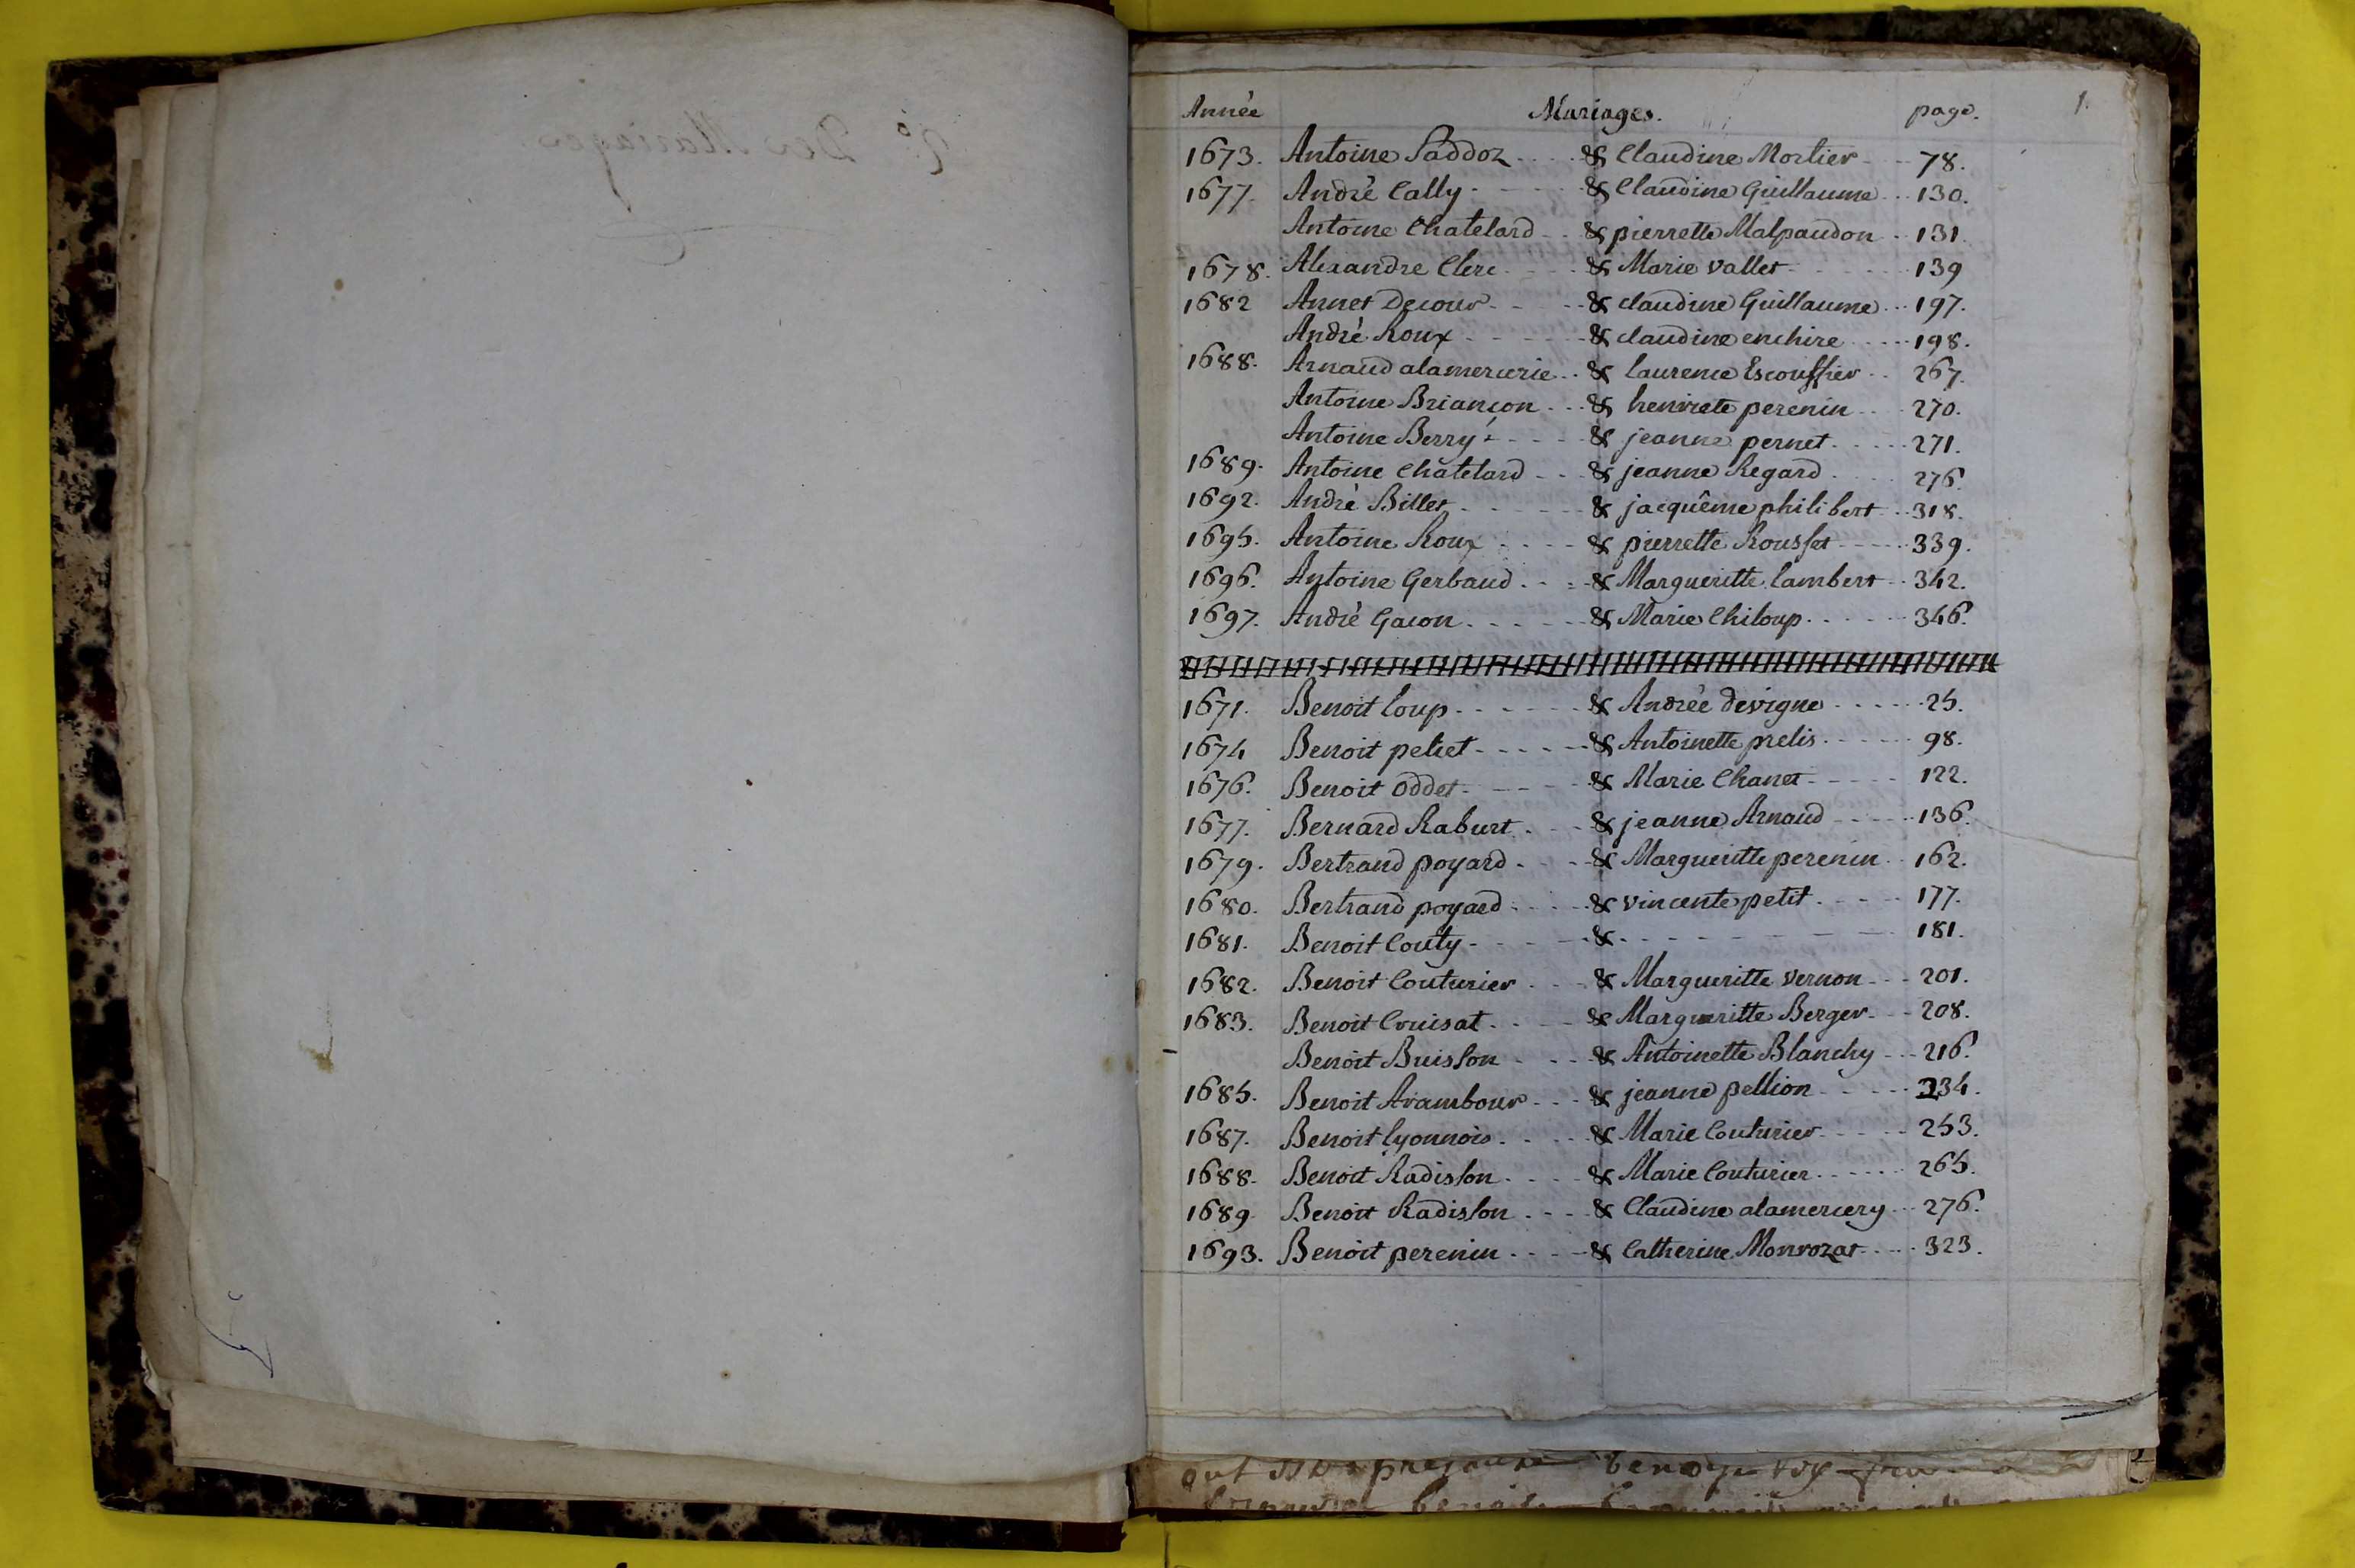 Année Mariages. page. 1.
1673. Antoine Paddoz & Claudine Mortier 78.
1677. André Cally & Claudine Guillaume 130.
Antoine Chatelard & pierrette Malpaudon 131.
1678. Alexandre Clerc & Marie vallet 139
1682 Annet Decour & claudine Guillaume 197.
André Roux & claudine enchire 198.
1688. Arnaud alamercerie & laurence Escouffier 267.
Antoine Briançon & henriete perenin 270.
Antoine Berry & jeanne pernet 271.
1689. Antoine Châtelard & jeanne Regard 276.
1692. André Billet & jacquême philibert 318.
1695. Antoine Roux & pierrette Rousset 339.
1696. Antoine Gerbaud & Margueritte lambert 342.
1697. André Gacon & Marie Chiloup 346.
1671. Benoit Loup & Andrée devigne 25.
1674 Benoit petiet & Antoinette prelis 98.
1676. Benoit oddet & Marie Chanet 122.
1677. Bernard Raburt & jeanne Arnaud 136.
1679. Bertrand poyard & Margueritte perenin 162.
1680. Bertrand poyard & vincente petit 177.
1681. Benoit Couty & 181.
1682. Benoit Couturier & Margueritte vernon 201.
1683. Benoit Cruisat & Margueritte Berger 208.
Benoit Buisson & Antoinette Blanchy 216.
1685. Benoit Arambour & jeanne pellion 234.
1687. Benoit lyonnois & Marie Couturier 253.
1688. Benoit Radisson & Marie Couturier 265.
1689. Benoit Radisson & Claudine alamercery 276.
1693. Benoit perenin & Catherine Monrozat 323.